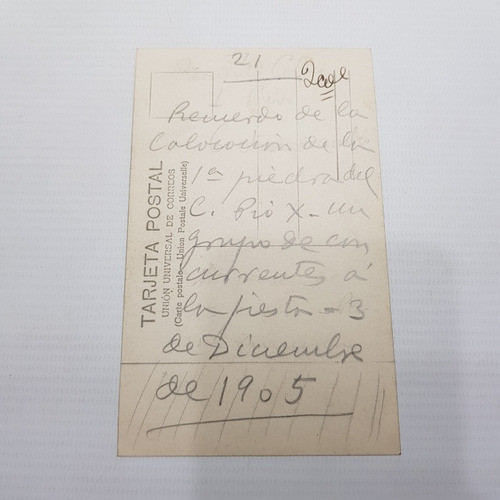 21
Recuerdo de la
Colocación de la
1ª piedra del
C. Pio X - un
grupo de con
currentes á
la fiesta - 3
de Diciembre
de 1905
TARJETA POSTAL
UNIÓN UNIVERSAL DE CORREOS
(Carte postale - Union Postale Universelle)